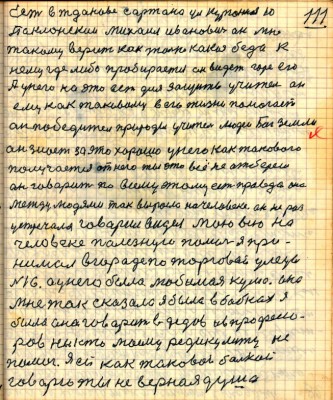 111
Есть в Жданове Сартано ул Куprina 10
Паплонский Михаил Иванович он мне
такому верит как только какая беда к
нему где либо пробирается он видет горе его
А у него на это ест для защиты учител он
ему как таковому в его жизни помогает
он победител природы учител людей Бог земли
он знает за это хорошо у него как такового
получается от него ты это всё не отбереш
он говарит по всему этому ест правда она
между людями так выросла на человека он не раз
встречал говарил видел мою
человеке полезную помоч я при-
нимал в городе по торговай улеце
№16. а у него была любимая кума. она
мне так сказала я была в бабках я
была она говарит в дедов в професо-
ров ны хто моему редикулиту не
помог. Я ей как таковой балной
говарю ты не верная душа